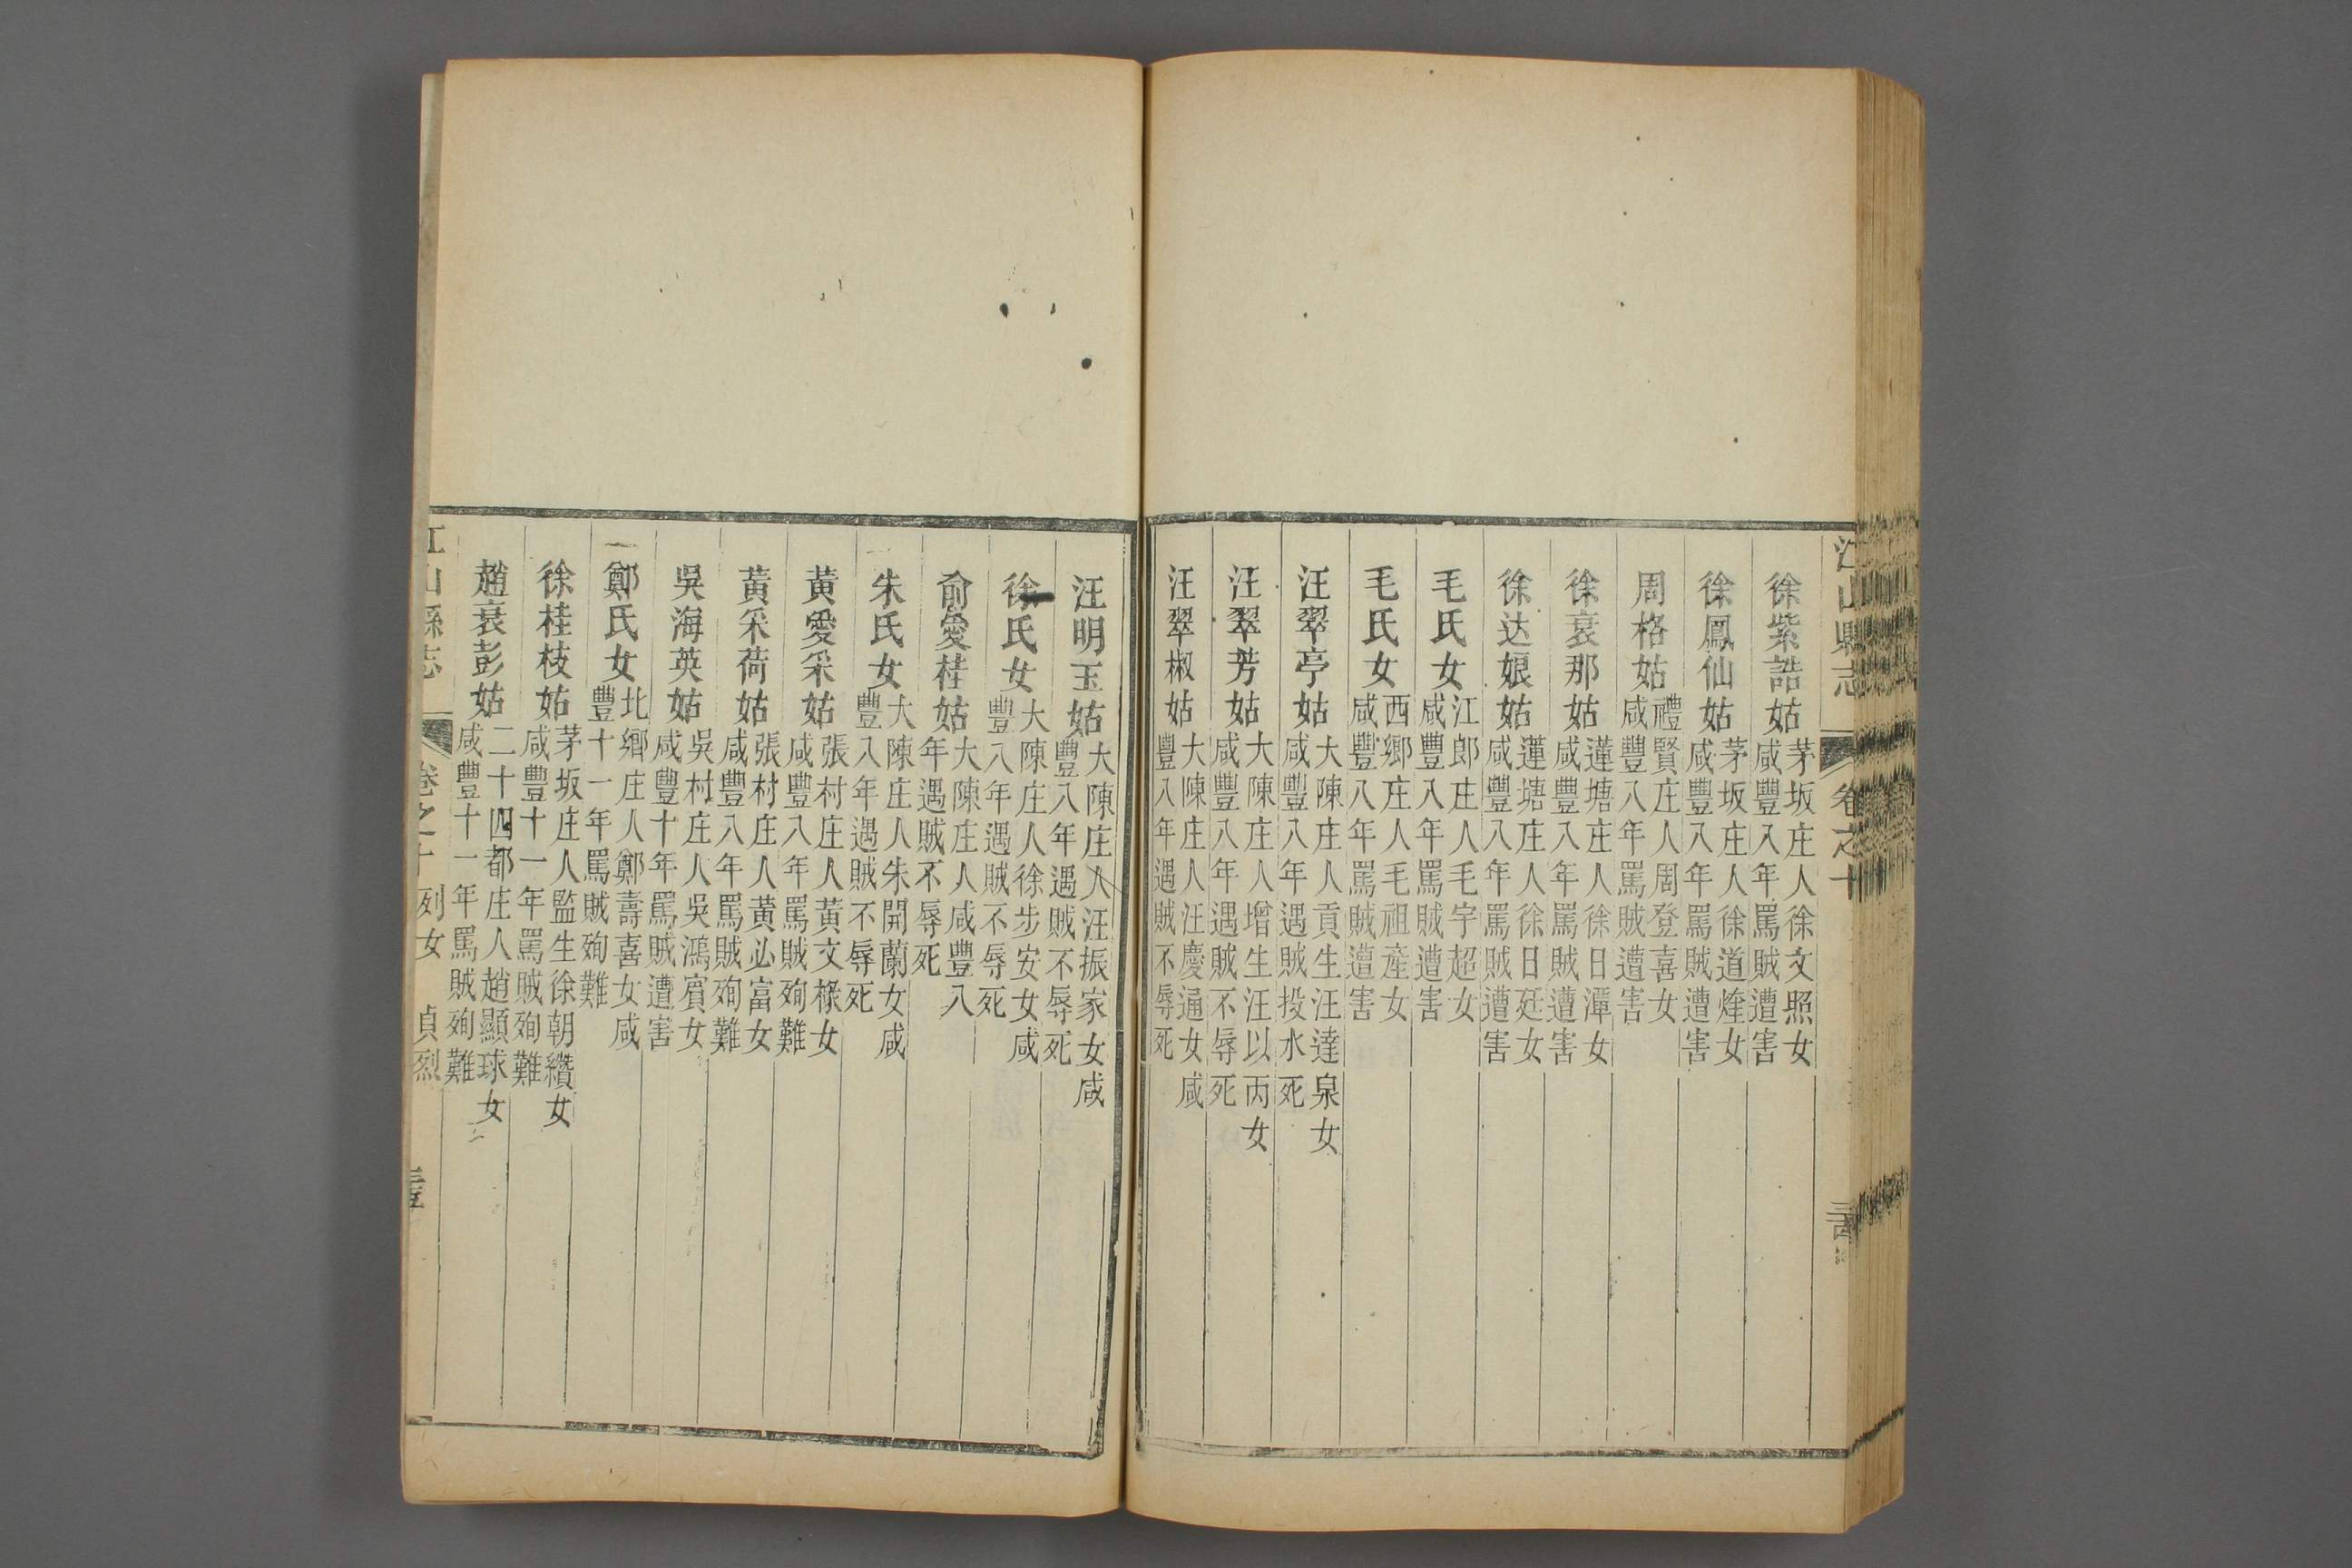 江山縣志 卷之十
徐紫誥姑 茅坂庄人徐文照女
咸豐八年罵賊遭害
徐鳳仙姑 茅坂庄人徐道煃女
咸豐八年罵賊遭害
周格姑 禮賢庄人周登喜女
咸豐八年罵賊遭害
徐衰那姑 蓮塘庄人徐日潭女
咸豐八年罵賊遭害
徐达娘姑 蓮塘庄人徐日廷女
咸豐八年罵賊遭害
毛氏女 江郎庄人毛宇超女
咸豐八年罵賊遭害
毛氏女 西鄉庄人毛祖產女
咸豐八年罵賊遭害
汪翠亭姑 大陳庄人貢生汪達泉女
咸豐八年遇賊投水死
汪翠芳姑 大陳庄人增生汪以丙女
咸豐八年遇賊不辱死
汪翠椒姑 大陳庄人汪慶通女咸
豐八年遇賊不辱死
汪明玉姑 大陳庄人汪振家女咸
豐八年遇賊不辱死
徐氏女 大陳庄人徐步安女咸
豐八年遇賊不辱死
俞愛桂姑 大陳庄人咸豐八
年遇賊不辱死
朱氏女 大陳庄人朱開蘭女咸
豐八年遇賊不辱死
黃愛采姑 張村庄人黃文樑女
咸豐八年罵賊殉難
黃采荷姑 張村庄人黃必富女
咸豐八年罵賊殉難
吳海英姑 吳村庄人吳鴻賓女
咸豐十年罵賊遭害
鄭氏女 北鄉庄人鄭壽喜女咸
豐十一年罵賊殉難
徐桂枝姑 茅坂庄人監生徐朝纘女
咸豐十一年罵賊殉難
趙衰彭姑 二十四都庄人趙顯球女
咸豐十一年罵賊殉難
江山縣志 卷之十 列女 貞烈